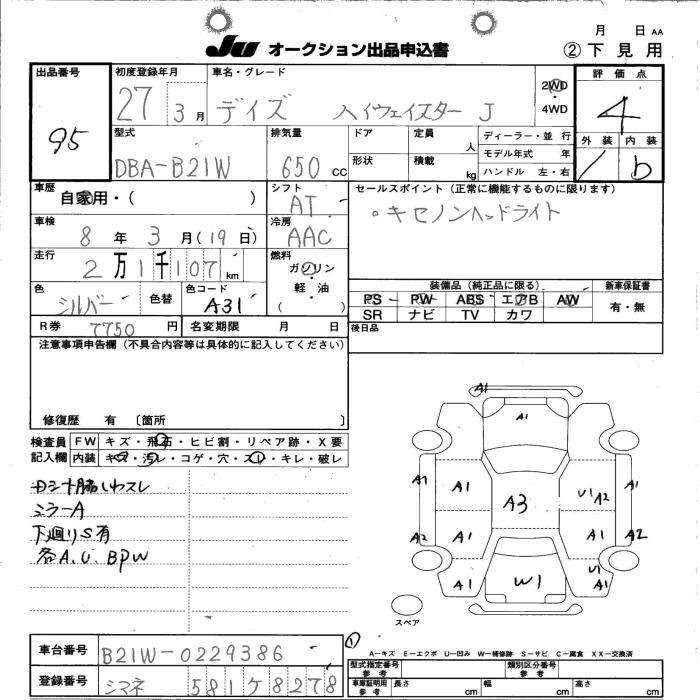 月 日 AA
JU オークション出品申込書
② 下見用
出品番号 95
初度登録年月 27 3月
車名・グレード デイズ ハイウェイスター J
2WD 4WD
評価点 4
外装 内装 b
型式 DBA-B21W
排気量 650 CC
ドア 定員 人
形状 積載 kg
ディーラー・並行
モデル年式 年
ハンドル 左・右
車歴 自家用・( )
シフト AT
セールスポイント(正常に機能するものに限ります)
。キセノンヘッドライト
車検 8年 3月(19日)
冷房 AAC
走行 2万1千107km
燃料 ガソリン・軽油 ( )
色 シルバー 色替
色コード A31
装備品(純正品に限る) 新車保証書
PS PW ABS エアB AW 有・無
SR ナビ TV カワ
R券 7750円 名変期限 月 日
後日品
注意事項申告欄(不具合内容等は具体的に記入してください)
修復歴 有 〔箇所 〕
検査員記入欄
FW キズ・飛石・ヒビ割・リペア跡・X要
内装 キズ・汚レ・コゲ・穴・スレ・キレ・破レ
Dシート脇しわスレ
ミラーA
下廻りS有
各A.U.BPW
A1
A1
A1 A1 A3 U1 A2 A1
A2 A1 A1 A2
A1 W1 U1 A1
スペア
A-キズ E-エクボ U-凹み W-補修跡 S-サビ C-腐食 XX-交換済
車台番号 B21W-0229386
登録番号 シマネ 581ケ8278
型式指定番号 参考 類別区分番号 参考
車庫証明用 参考 長さ cm 幅 cm 高さ cm